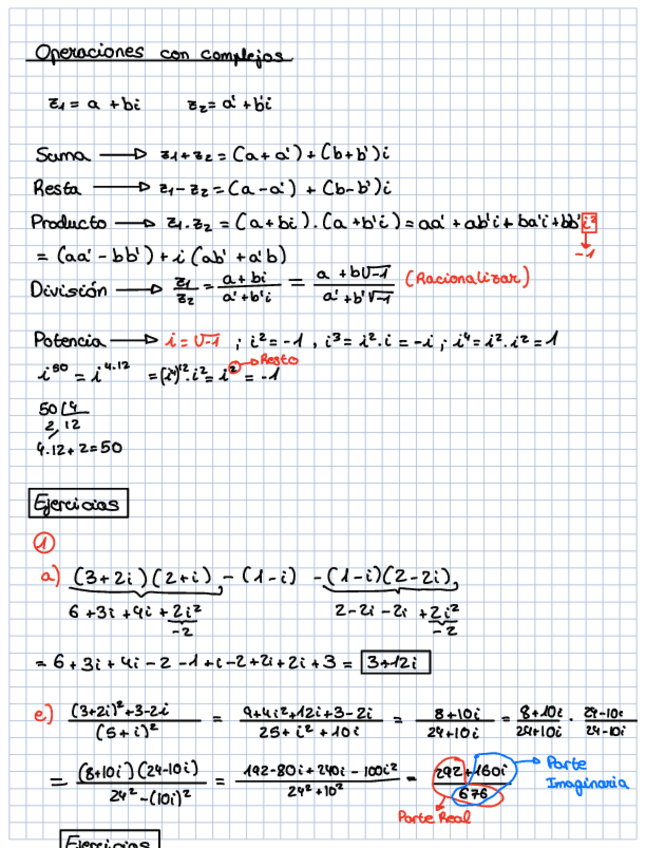 Operaciones con complejos
z1 = a + bi z2 = a' + b'i
Suma → z1+z2 = (a+a')+(b+b')i
Resta → z1-z2 = (a-a') + (b-b')i
Producto → z1.z2 = (a+bi).(a+b'i) = aa' + ab'i + ba'i + bb'i²
= (aa' - bb') + i (ab' + a'b) -1
División → z1/z2 = a+bi/a'+b'i = a + b√-1/a' + b'√-1 (Racionalizar)
Potencia → i = √-1 ; i² = -1 , i³ = i².i = -i ; i⁴ = i².i² = 1
i⁵⁰ = i⁴·¹² = (i⁴)¹².i² = i² = -1 → Resto
50 | 4
2 12
4.12 + 2 = 50
Ejercicios
1
a) (3+2i)(2+i) - (1-i) - (1-i)(2-2i)
6 + 3i + 4i + 2i² 2-2i-2i + 2i²
-2 -2
= 6 + 3i + 4i - 2 - 1 + i - 2 + 2i + 2i + 3 = 3+12i
e) (3+2i)²+3-2i/(5+i)² = 9+4i²+12i+3-2i/25+i²+10i = 8+10i/24+10i = 8+10i/24+10i . 24-10i/24-10i
= (8+10i)(24-10i)/24²-(10i)² = 192-80i+240i-100i²/24²+10² = 292+160i/676 → Parte Imaginaria
Parte Real
Ejercicios